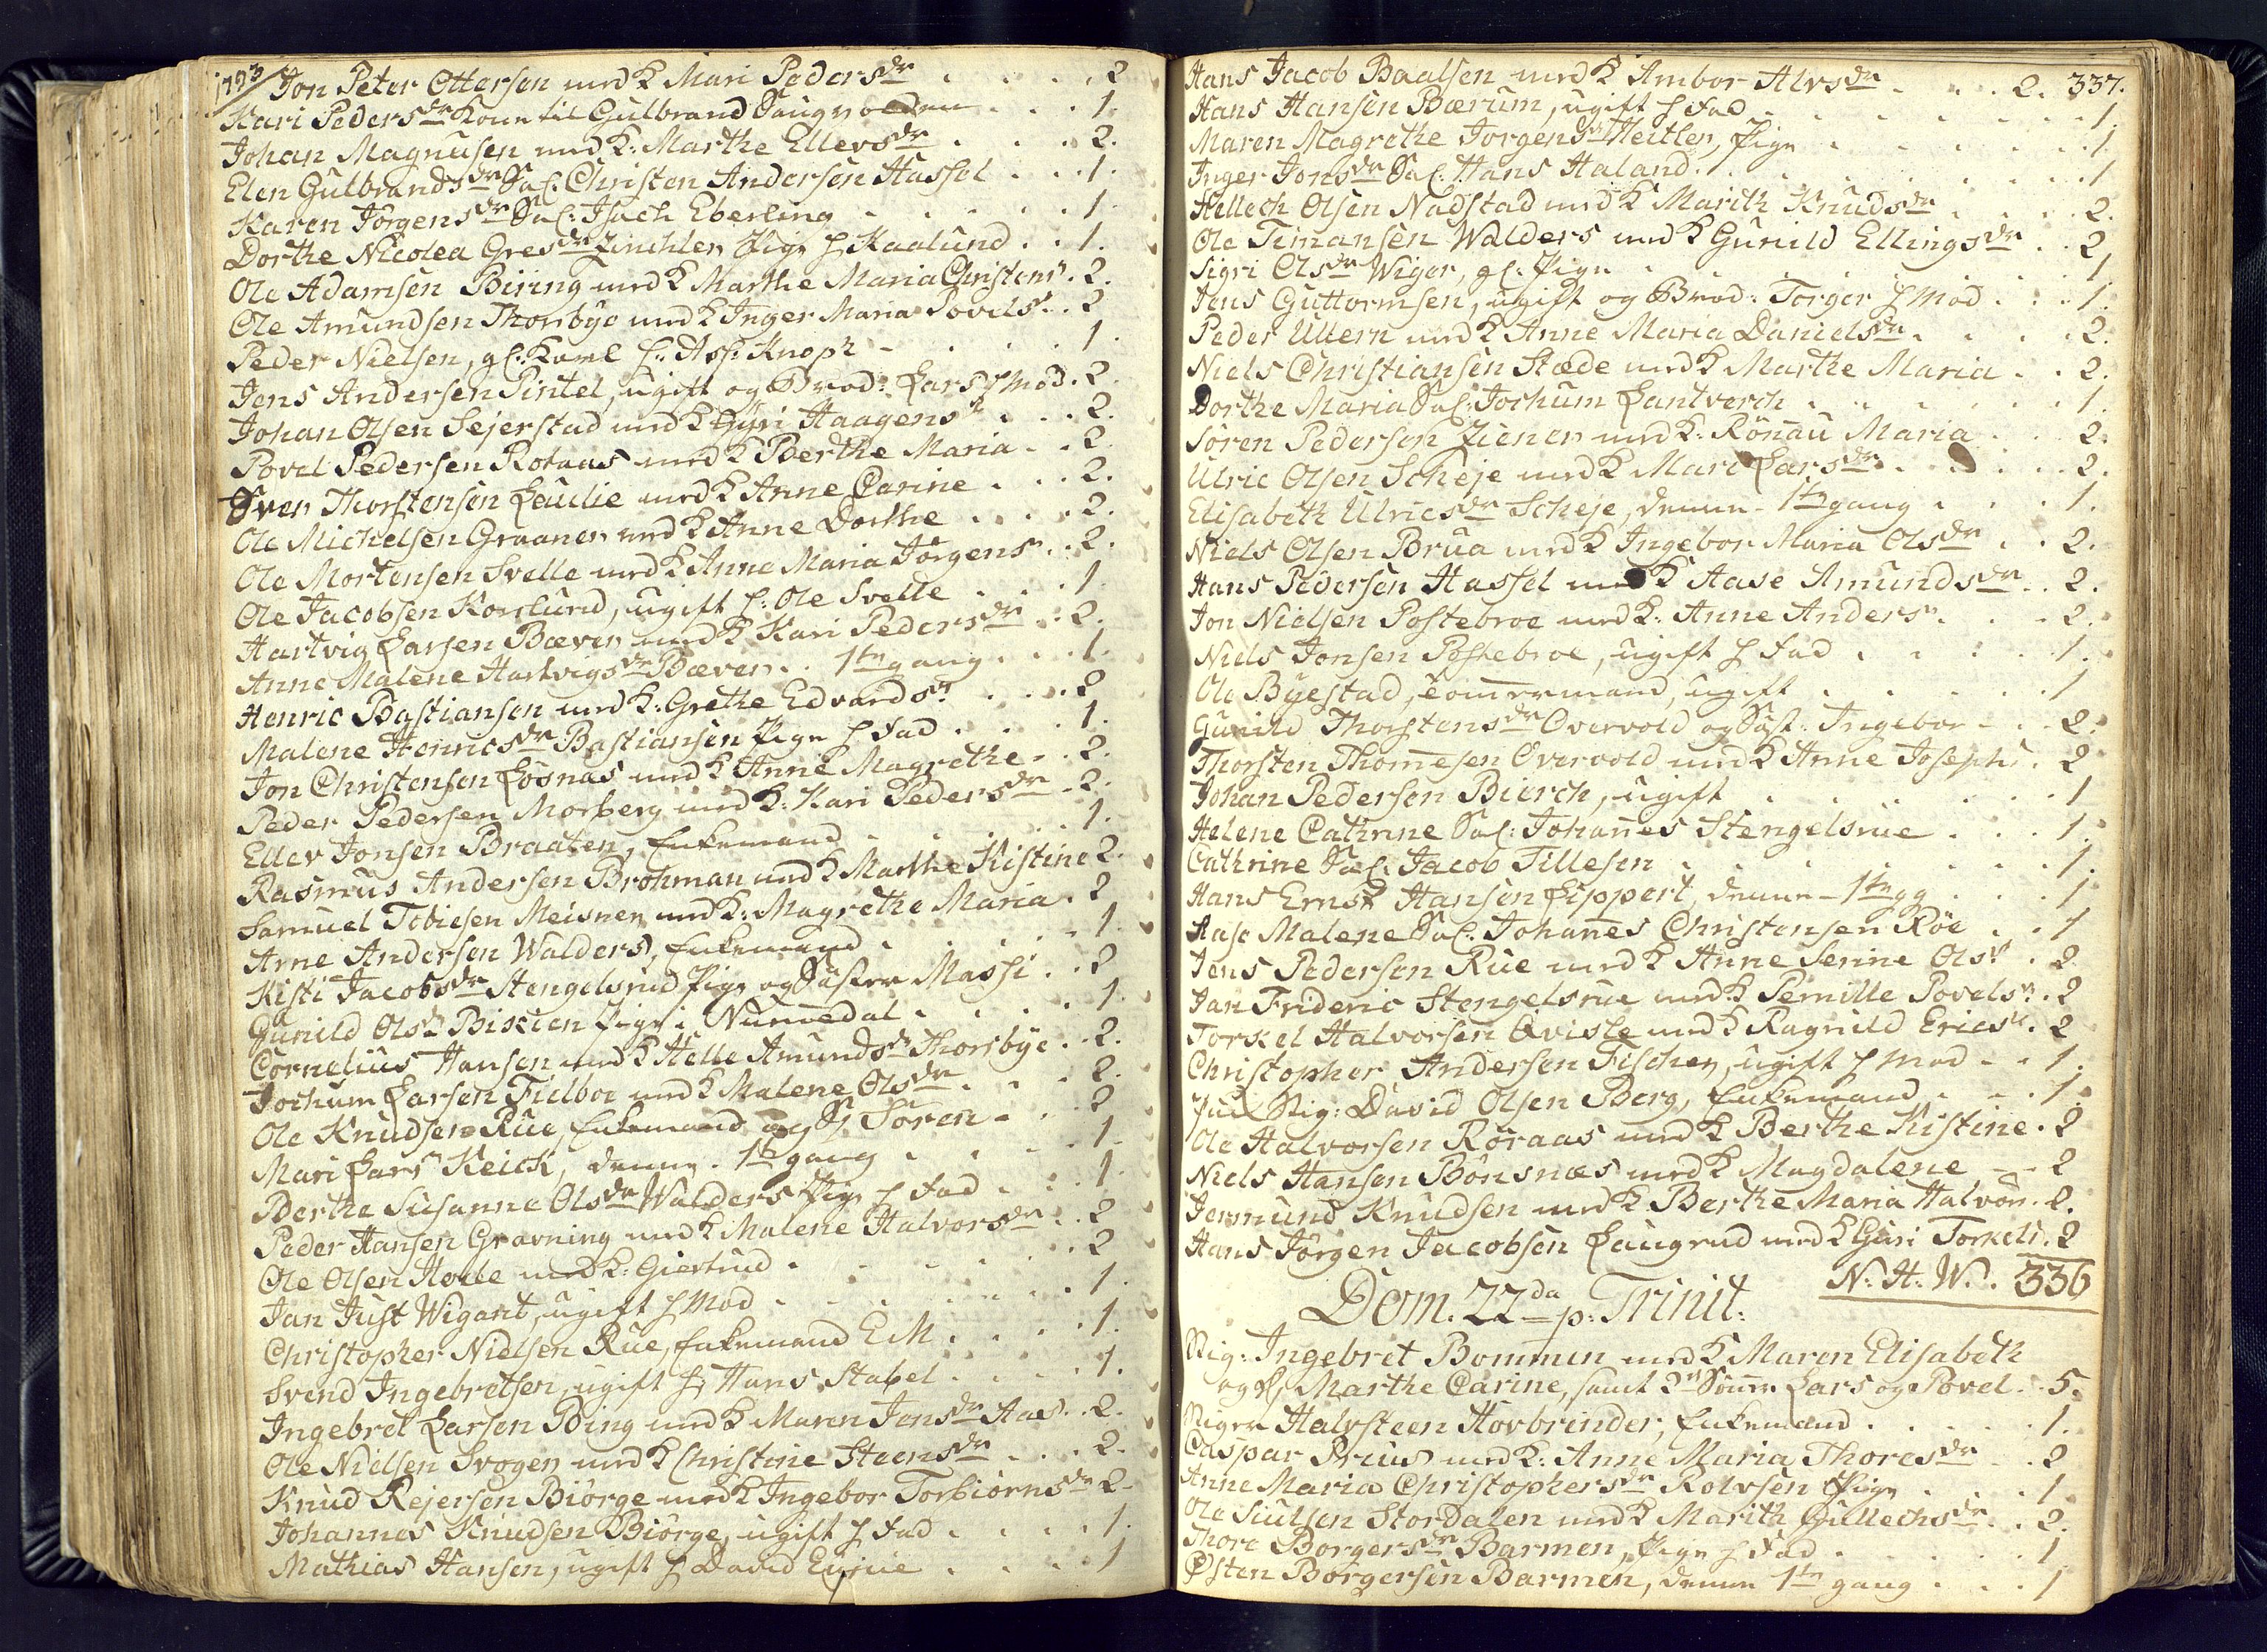 1793/ Jon Peter Ottersen med K Mari Pedersdr . . . . 2
Kari Pedersdr Kone til Gulbrand Saugvolden . . . 1.
Johan Magnusen med K: Marthe Ellevsdr . . . 2.
Elen Gulbrandsdr Sal: Christen Andersen Hassel . . . 1.
Karen Jörgensdr Sal: Isach Eberling . . . . . 1.
Dorthe Nicolea Gresdr Pige h Kaalund . . 1.
Ole Adamsen Biring med K Marthe Maria Christens . 2.
Ole Amundsen Thorsbye med K Inger Maria Povels . . 2
Peder Nielsen, gl: Karl h: Ass: Knoph . . . . 1.
Jens Andersen Pintel, ugift og Brod: Lars h Mod . 2.
Johan Olsen Sejerstad med K Gyri Haagens . . . 2.
Povel Pedersen Rotaas med K Berthe Maria . . 2.
Sven Thorstensen Laulie med K Anne Carine . . . 2.
Ole Michelsen Graaner med K Anne Dorthe . . . . 2.
Ole Mortensen Svelle med K Anne Maria Jörgens . . 2.
Ole Jacobsen Korslund, ugift h: Ole Svelle . . . 1.
Hartvig Larsen Bæver med K Kari Pedersdr . . 2.
Anne Malene Hartvigsdr Bæver . . 1te gang . . . 1.
Henric Bastiansen med K: Grethe Edvards . . . . 2
Malene Henricsdr Bastiansen Pige h Fad . . . . 1.
Jon Christensen Losnas med K Anne Magrethe . . 2.
Peder Pedersen Morberg med K: Kari Pedersdr . 2.
Ellev Jonsen Braaten, Enkemand . . . . . 1.
Rasmus Andersen Brohman med K Marthe Kistine 2.
Samuel Tobiesen Meisner med K: Magrethe Maria . 2
Arne Andersen Walders, Enkemand . . . . . 1.
Kisti Jacobsdr Stengelsrud Pige og Söster Massi . . 2
Gunild Ols Pige i Numedal . . . . 1.
Cornelius Hansen med K Helle Amundsdr Thorsbye . . 2.
Jochum Larsen Fielboe med K Malene Olsdr . . . 2.
Ole Knudsen Rue, Enkemand og S Sören . . . 2
Mari Lars Keick, denne . 1te gang . . . . 1.
Berthe Susanne Olsdr Walders Pige h Fad . . . 1.
Peder Hansen Gravning med K Malene Halvorsdr . . 2
Ole Olsen med K: Giertrud . . . . . . 2
Jan Just Wigant, ugift h Mod . . . . . . . 1.
Christopher Nielsen Rue, Enkemand E M . . . . . 1.
Svend Ingebretsen, ugift h Hans Stabel . . . . 1.
Ingebret Larsen Bing med K Maren Jensdr Aas . . 2.
Ole Nielsen Svogen med K Christine Steensdr . . . 2.
Knud Rejersen Biörge med K Ingebor Torbiörnsdr 2.
Johannes Knudsen Biörge, ugift h Fad . . . . 1.
Mathias Hansen, ugift h David . . . . 1
Hans Jacob Baalsen med K Ambor Alvsdr . . . 2. 337.
Hans Hansen Bærum, ugift h Fad . . . . . . . 1.
Maren Magrethe Jorgens Heitler, Pige . . . . . . 1.
Inger Jonsdr Sal: Hans Haland . . . . . . . . . 1
Hellech Olsen Nadstad med K Marith Knudsdr . . . . 2.
Ole Timansen Walders med K Gunild Ellingsdr . . 2
Sigri Olsdr Wiger, gl: Pige . . . . . . . . 1
Jens Guttormsen, ugift og Brod: Torger h Mod . . . 1.
Peder Ullern med K Anne Maria Danielsdr . . . . 2.
Niels Christiansen Stæde med K Marthe Maria . . 2.
Dorthe Maria Sal: Jochum Lantverch . . . . . . 1.
Sören Pedersen Ziener med K: Rönau Maria . . . 2.
Ulric Olsen Scheje med K Mari Larsdr . . . . . 2.
Elisabeth Ulricsdr Scheje, denne - 1te gang . . . . 1.
Niels Olsen Brua med K Ingebor Maria Olsdr . . 2.
Hans Pedersen Hassel med K Aase Amundsdr . . 2.
Jon Nielsen Postebroe med K: Anne Anders . . . 2.
Niels Jonsen Postebroe, ugift h Fad . . . . . 1.
Ole Byestad, Tommermand, ugift . . . . . . . 1
Gunild Thorstensdr Overvold og Söst: Ingebor . . . 2.
Thorsten Thomesen Overvold med K Anne Josephs . 2
Johan Pedersen Bierch, ugift . . . . . . . 1
Helene Cathrine Sal: Johannes Stengelsrue . . . . 1.
Cathrine Sal: Jacob Tillesen . . . . . . . . 1.
Hans Ernst Hansen Lippert, denne - 1te gg . . . . 1
Aase Malene Sal: Johannes Christensen Röe . . 1
Jens Pedersen Rue med K Anne Serine Ols . 2
Jan Frideric Stengelsrue med K Pernille Povels . 2
Torkel Halvorsen Qvisle med K Ragnild Erics . 2
Christopher Andersen Fischer, ugift h Mod . . 1.
Stig: David Olsen Berg, Enkemand . . . 1.
Ole Halvorsen Röraas med K Berthe Kistine . 2
Niels Hansen Bönsnæs med K Magdalene . . 2
Jermund Knudsen med K Berthe Maria Halvor . 2.
Hans Jörgen Jacobsen Laugrud med K Guri Torkels . 2
N: H: W: . 336
Dom. 22da p: Trinit:
Stig: Ingebret Bommen med K Maren Elisabeth
og d, Marthe Carine, samt 2de Sönner Lars og Povel . . 5.
Halvsteen Hovbrender, Enkemand . . . . . 1.
Caspar Prius med K: Anne Maria Thoresdr . . 2
Anne Maria Christophersdr Rolvsen Pige . . . . 1.
Ole Siulsen Stordalen med K Marith Gullechsdr . . 2.
Thore Borgersdr Barmen, Pige h Fad . . . . . 1
Østen Borgersen Barmen, denne 1te gang . . . 1